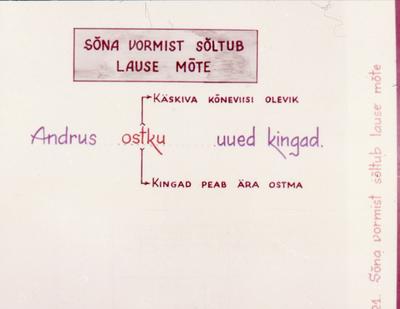 SÕNA VORMIST SÕLTUB
LAUSE MÕTE
KÄSKIVA KÕNEVIISI OLEVIK
Andrus ostku uued kingad.
KINGAD PEAB ÄRA OSTMA
21. Sõna vormist sõltub lause mõte